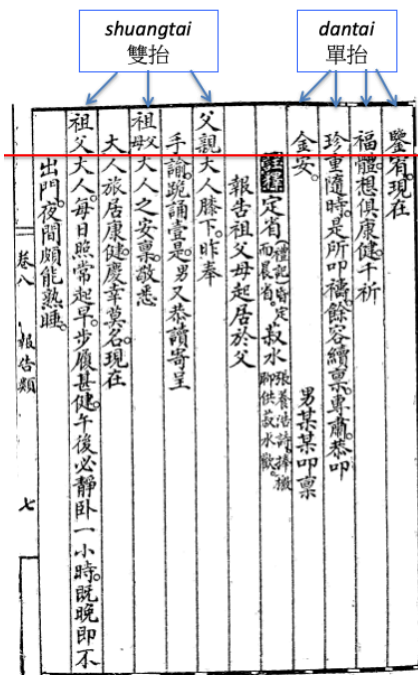 shuangtai
雙抬
dantai
單抬
鑒宥。現在
福體想俱康健。千祈
珍重隨時。是所叩禱。餘容續稟。專肅恭叩
金安。 男某某叩稟
註釋 定省 禮記。昏定而晨省。 菽水 張養浩詩。捧檄聊供菽水歡。
報告祖父母起居於父
父親大人膝下。昨奉
手諭。跪誦壹是。男又恭讀寄呈
祖父母大人之安稟。敬悉
大人旅居康健。慶幸莫名。現在
祖父大人。每日照常起早。步履甚健。午後必靜臥一小時。既晚即不
出門。夜間頗能熟睡。
卷八 報告類 七